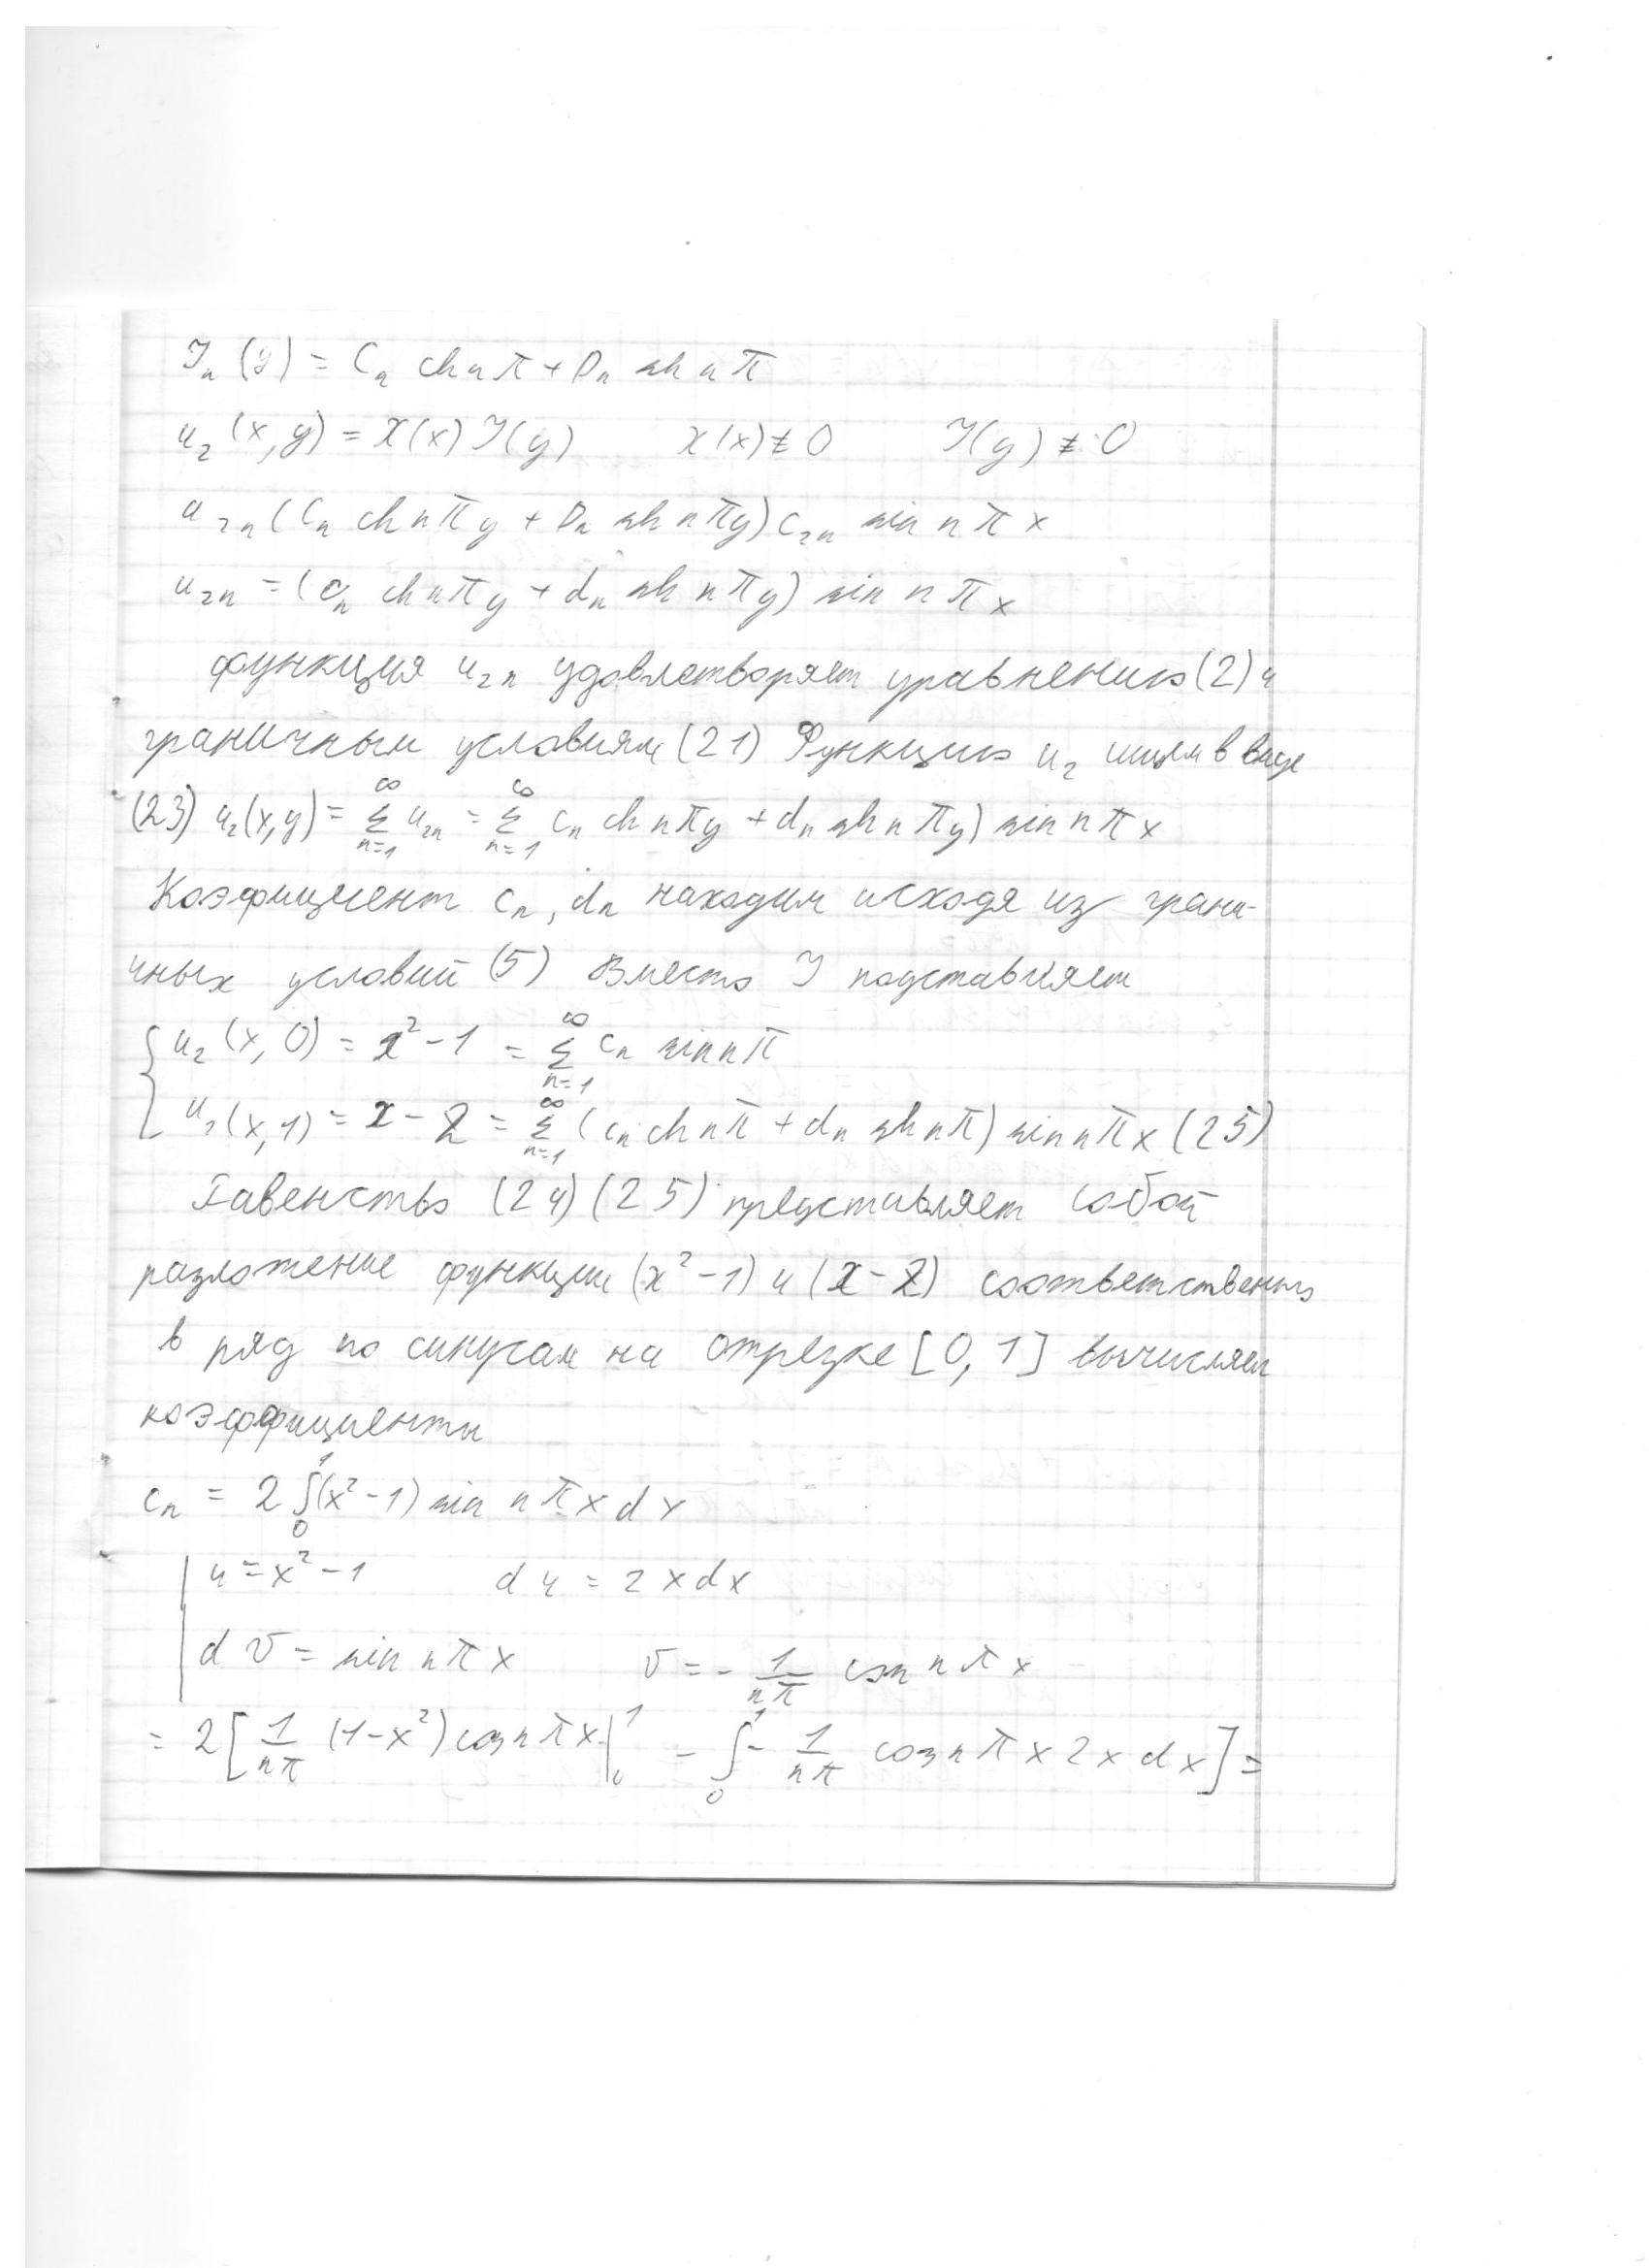 Yₙ(y) = Cₙ ch nπ + Dₙ sh nπ
u₂(x,y) = X(x) Y(y) X(x) ≢ 0 Y(y) ≢ 0
u₂ₙ (Cₙ ch nπy + Dₙ sh nπy) C₂ₙ sin nπx
u₂ₙ = (cₙ ch nπy + dₙ sh nπy) sin nπx
функция u₂ₙ удовлетворяет уравнению (2) и
граничным условиям (21) Функцию u₂ ищем в виде
(23) u₂(x,y) = ∑ₙ₌₁^∞ u₂ₙ = ∑ₙ₌₁^∞ cₙ ch nπy + dₙ sh nπy) sin nπx
Коэфициент cₙ, dₙ находим исходя из грани-
чных условий (5) Вместо Y подставляем
{ u₂(x, 0) = x² - 1 = ∑ₙ₌₁^∞ cₙ sin nπ
u₂(x, 1) = x - 2 = ∑ₙ₌₁^∞ (cₙ ch nπ + dₙ sh nπ) sin nπx (25)
Равенство (24) (25) представляет собой
разложение функции (x² - 1) и (x - 2) соответственно
в ряд по синусам на отрезке [0, 1] вычисляем
коэффициенты
cₙ = 2 ∫₀¹ (x² - 1) sin nπx dx
| u = x² - 1 du = 2x dx
| dv = sin nπx v = - 1/nπ cos nπx
= 2 [ 1/nπ (1 - x²) cos nπx |₀¹ - ∫₀¹ - 1/nπ cos nπx 2x dx ] =